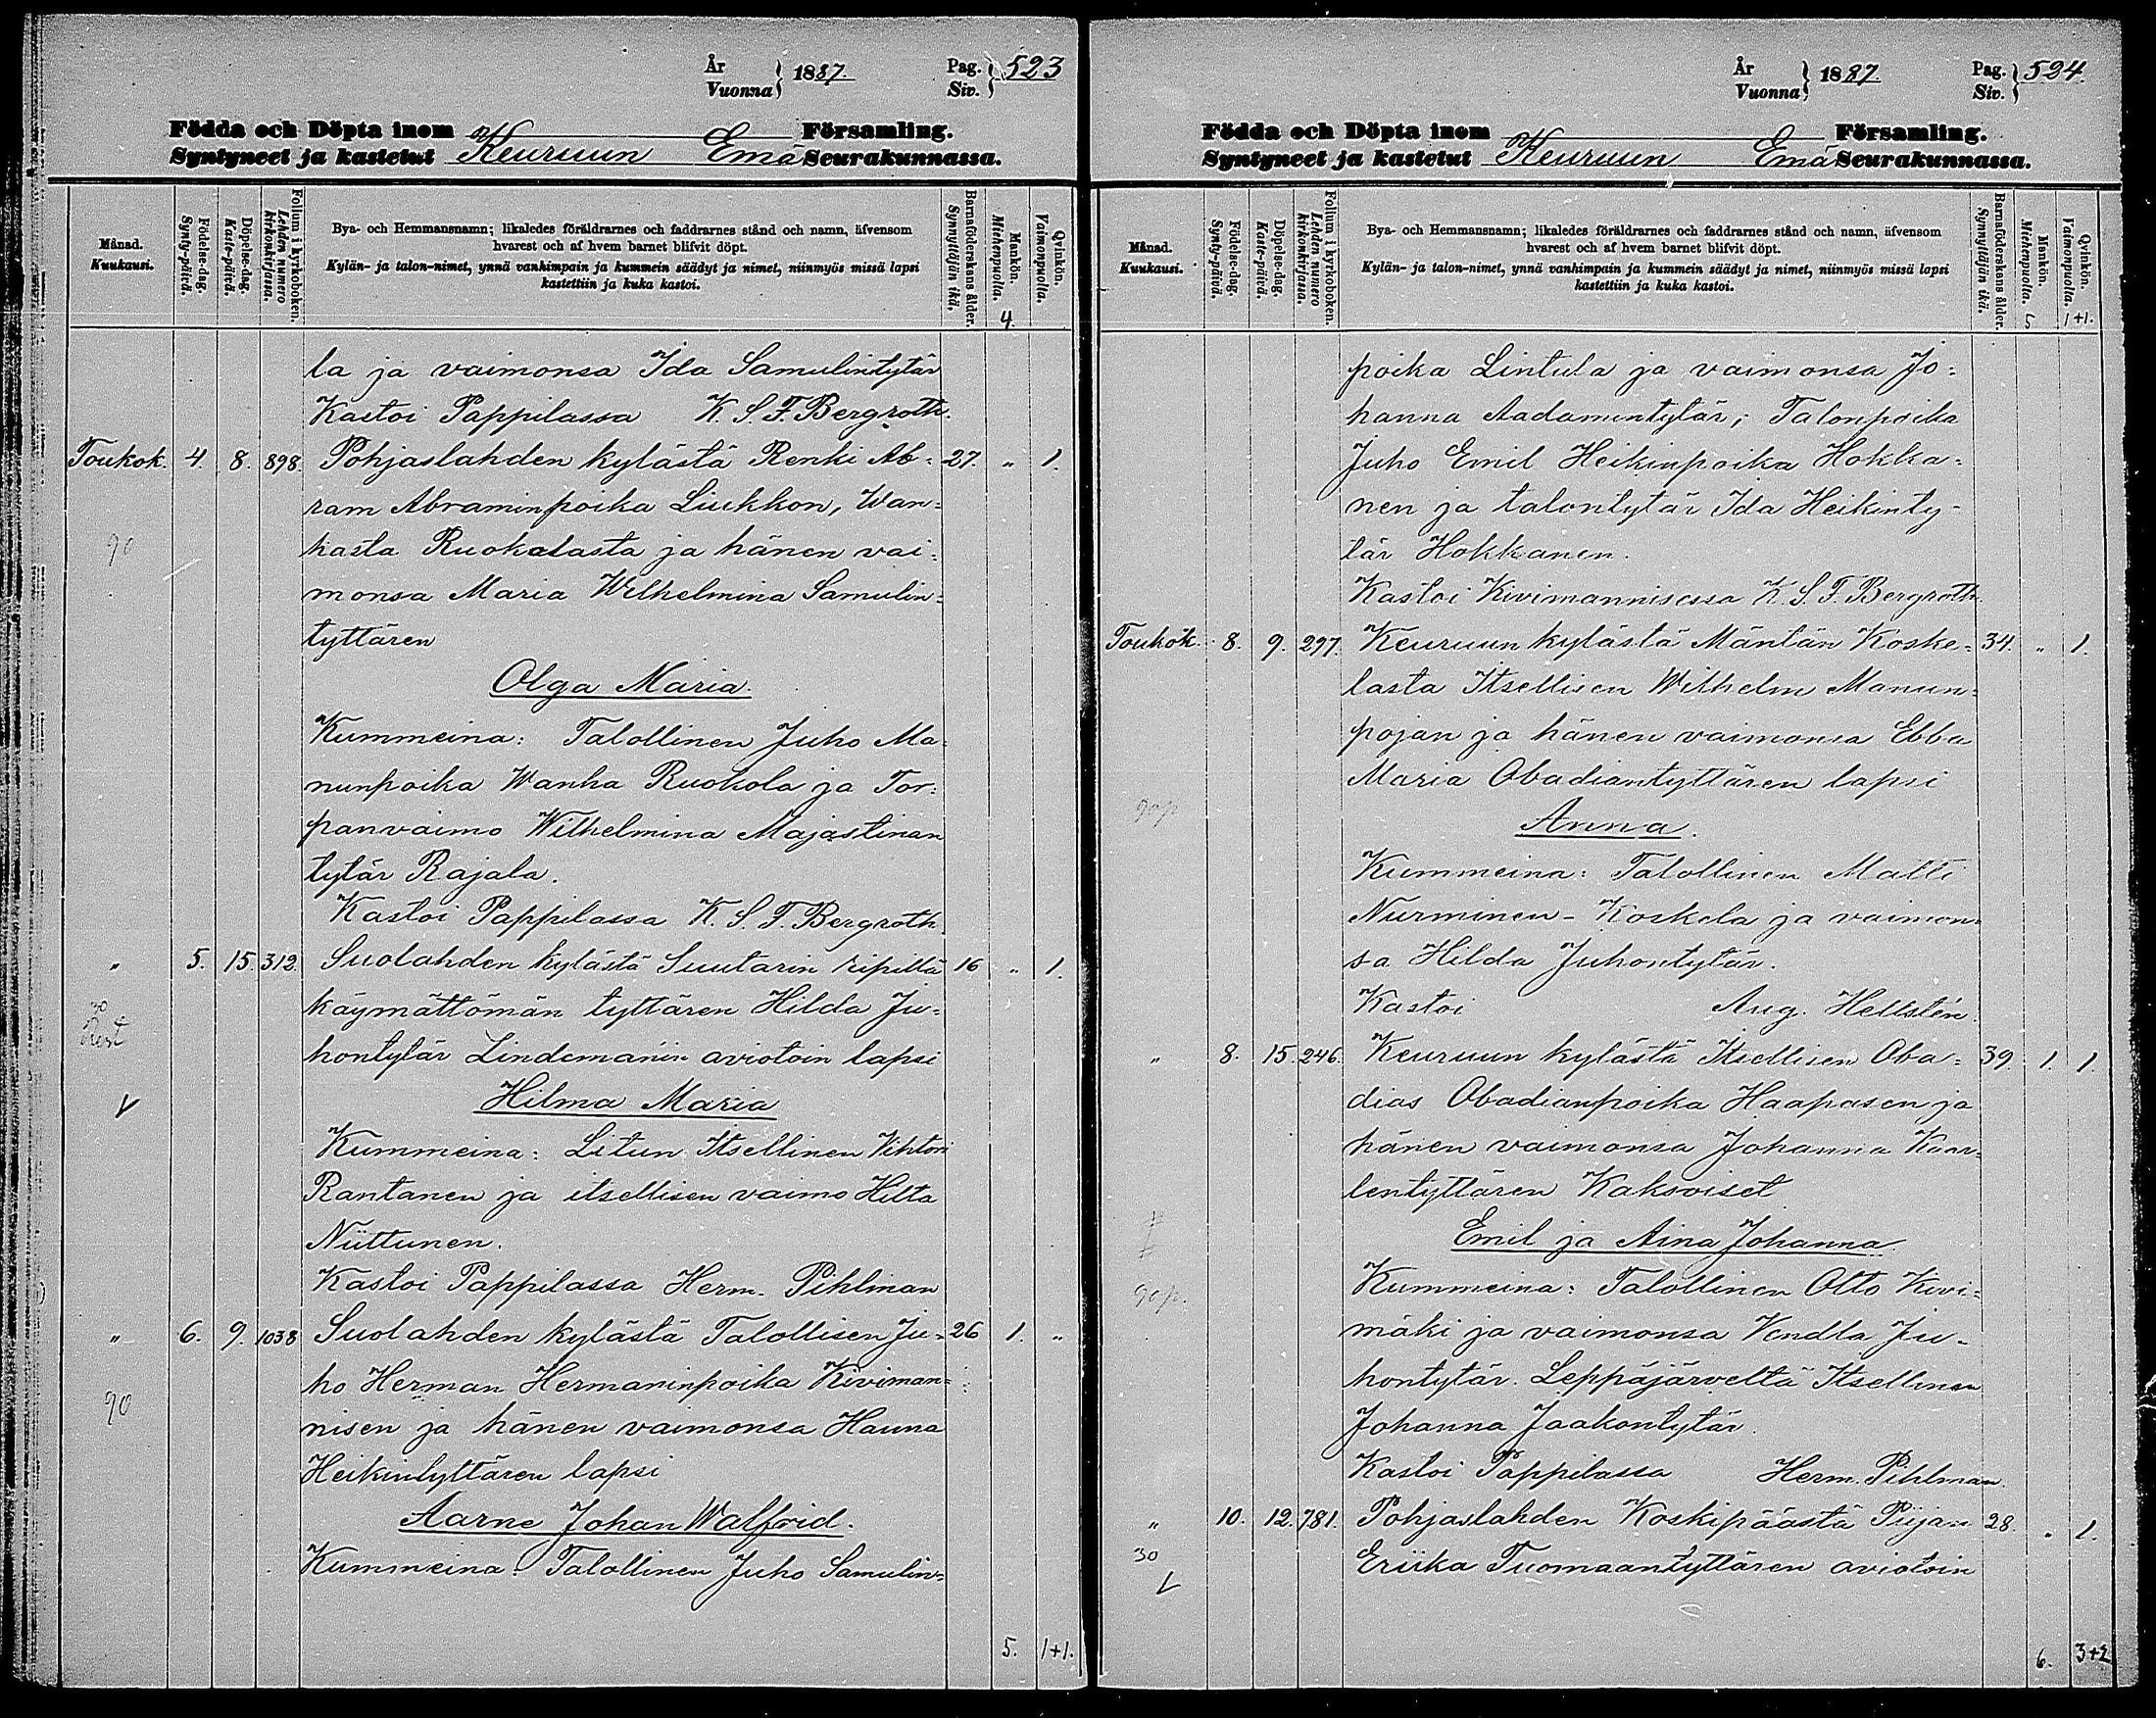 År
Vuonna } 1887.
Pag.
Siv. } 523
Födda och Döpta inom Församling.
Syntyneet ja kastetut Keuruun Emä Seurakunnassa.
Månad.
Kuukausi.
Födelse-dag.
Synty-päivä.
Döpelse-dag.
Kaste-päivä.
Folium i kyrkoboken.
Lehden numero kirkonkirjassa.
Bya- och Hemmansnamn; likaledes föräldrarnes och faddrarnes stånd och namn, äfvensom
hvarest och af hvem barnet blifvit döpt.
Kylän- ja talon-nimet, ynnä vanhimpain ja kummein säädyt ja nimet, niinmyös missä lapsi
kastettiin ja kuka kastoi.
Barnaföderskans ålder.
Synnyttäjän ikä.
Mankön.
Miehenpuolta.
Qvinkön.
Vaimonpuolta.
4.
la ja vaimonsa Ida Samulintytär
Kastoi Pappilassa K. S. F. Bergroth.
Toukok. 4. 8. 898. Pohjaslahden kylästä Renki Ab= 27. " 1.
ram Abraminpoika Liukkon, Wan=
90 hasta Ruokolasta ja hänen vai=
monsa Maria Wilhelmina Samulin=
tyttären
Olga Maria.
Kummeina: Talollinen Juho Ma=
nunpoika Wanha Ruokola ja Tor=
panvaimo Wilhelmina Majastinan
tytär Rajala.
Kastoi Pappilassa K. S. F. Bergroth.
" 5. 15. 312. Suolahden kylästä Suutarin ripillä 16 " 1.
30 käymättömän tyttären Hilda Ju=
hontytär Lindemanin aviotoin lapsi
Hilma Maria
Kummeina: Litun Itsellinen Vihtori
Rantanen ja itsellisen vaimo Hilta
Niittunen.
Kastoi Pappilassa Herm. Pihlman
" 6. 9. 1038 Suolahden kylästä Talollisen Ju= 26 1. "
ho Herman Hermaninpoika Kiviman=
90 nisen ja hänen vaimonsa Hanna
Heikintyttären lapsi
Aarne Johan Walfrid.
Kummeina: Talollinen Juho Samulin=
5. 1+1.
År
Vuonna } 1887.
Pag.
Siv. } 524.
Födda och Döpta inom Församling.
Syntyneet ja kastetut Keuruun Emä Seurakunnassa.
Månad.
Kuukausi.
Födelse-dag.
Synty-päivä.
Döpelse-dag.
Kaste-päivä.
Folium i kyrkoboken.
Lehden numero kirkonkirjassa.
Bya- och Hemmansnamn; likaledes föräldrarnes och faddrarnes stånd och namn, äfvensom
hvarest och af hvem barnet blifvit döpt.
Kylän- ja talon-nimet, ynnä vanhimpain ja kummein säädyt ja nimet, niinmyös missä lapsi
kastettiin ja kuka kastoi.
Barnaföderskans ålder.
Synnyttäjän ikä.
Mankön.
Miehenpuolta.
Qvinkön.
Vaimonpuolta.
5 1+1.
poika Lintula ja vaimonsa Jo=
hanna Aadamintytär; Talonpoika
Juho Emil Heikinpoika Hokka=
nen ja talontytär Ida Heikinty-
tär Hokkanen.
Kastoi Kivimannisessa K. S. F. Bergroth
Toukok. 8. 9. 297. Keuruun kylästä Mäntän Koske= 34. " 1.
lasta Itsellisen Wilhelm Manun=
pojan ja hänen vaimonsa Ebba
Maria Obadiantyttären lapsi
90p. Anna.
Kummeina: Talollinen Matti
Nurminen-Koskela ja vaimon=
sa Hilda Juhontytär.
Kastoi Aug. Hellstén.
" 8. 15. 246. Keuruun kylästä Itsellisen Oba= 39. 1. 1.
dias Obadianpoika Haapasen ja
hänen vaimonsa Johanna Kaar=
lentyttären Kaksoiset
Emil ja Aina Johanna
90p. Kummeina: Talollinen Otto Kivi=
mäki ja vaimonsa Vendla Ju-
hontytär. Leppäjärveltä Itsellinen
Johanna Jaakontytär.
Kastoi Pappilassa Herm. Pihlman.
" 10. 12. 781. Pohjaslahden Koskipäästä Piijan 28 " 1.
30 Eriika Tuomaantyttären aviotoin
6. 3+2